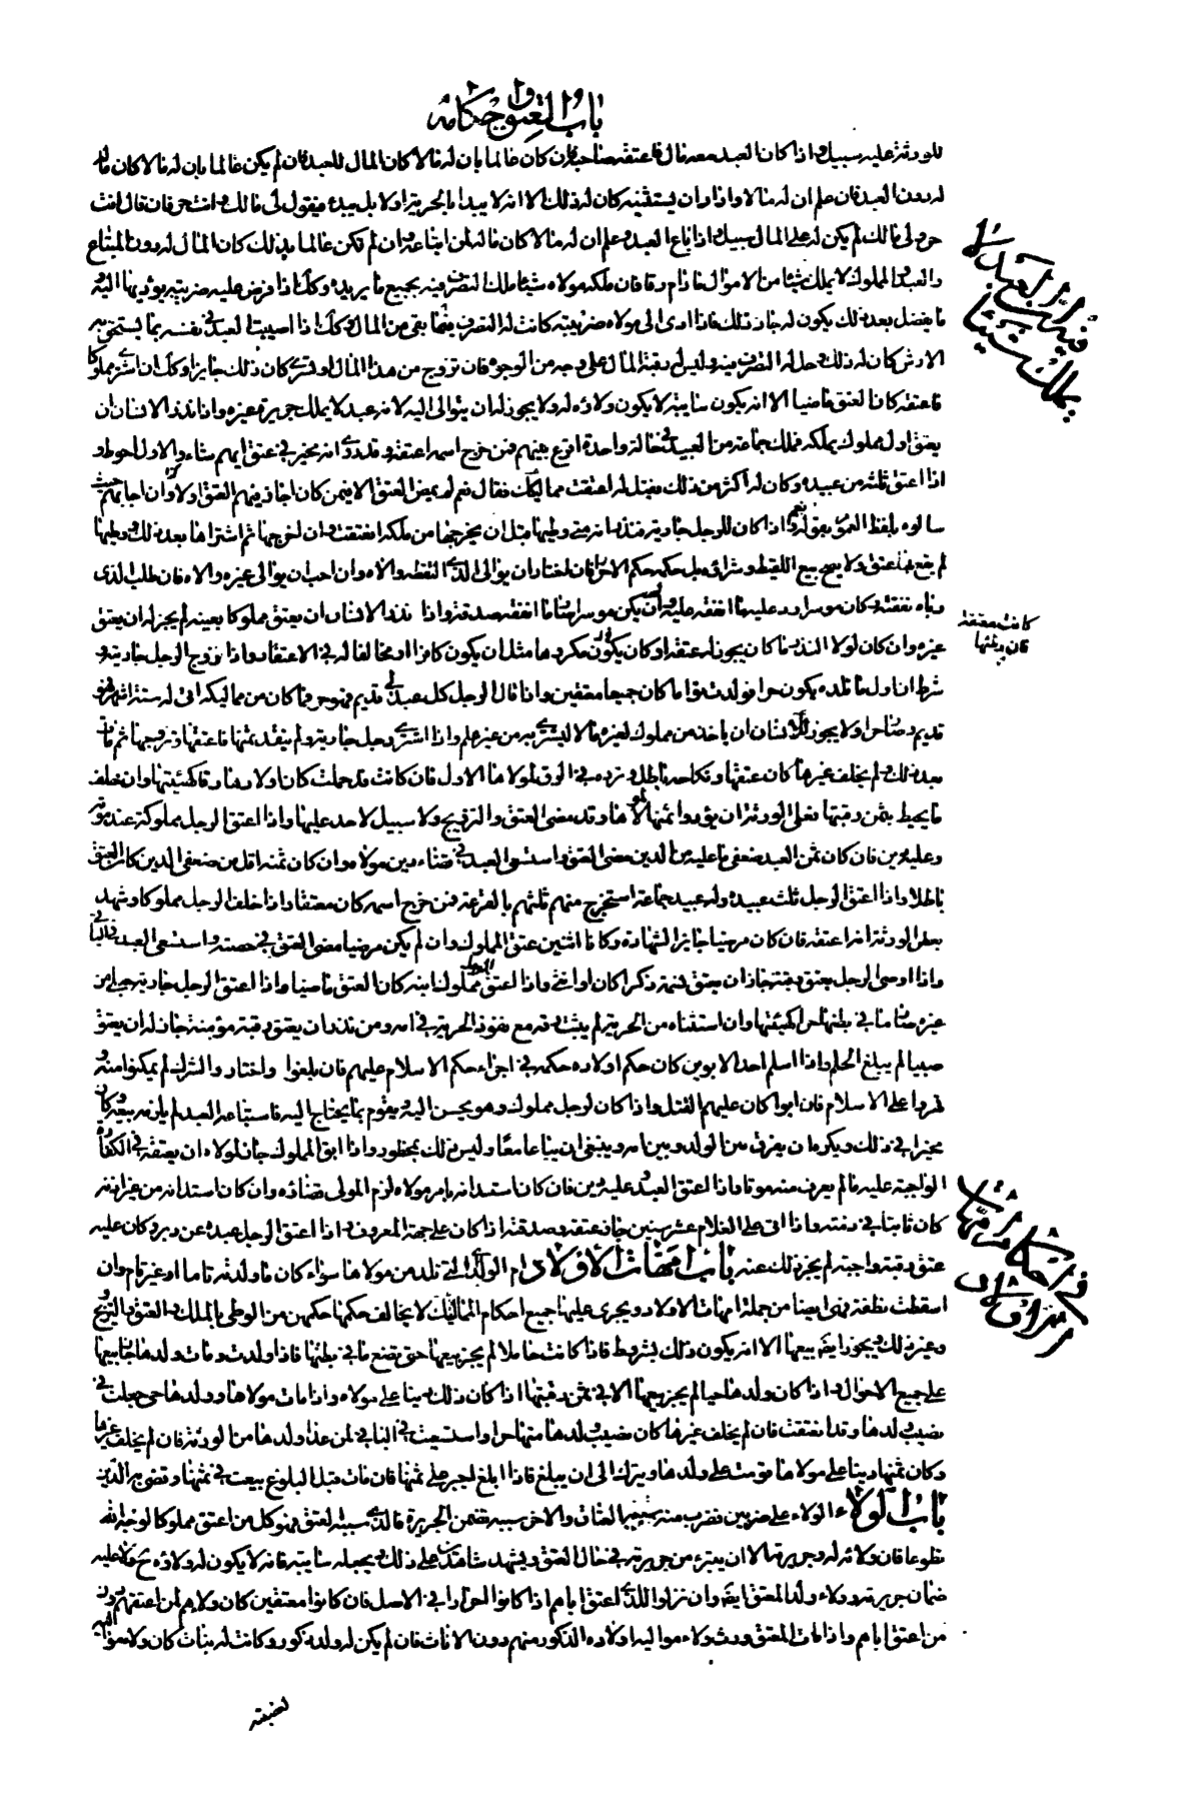 باب العتق واحكامه
للورثة عليه سبيل واذا كان العبد معه مال فاعتقه صاحبه فان كان عالما بان له مالا كان المال للعبد فان لم يكن عالما بان له مالا كان ماله
له دون العبد فان علم ان له مالا واراد ان يستثنيه كان له ذلك الا انه لا يبدا بالحرية اولا بل يبدء فيقول لى مالك وانت حر فان قال انت
حر ولى مالك لم يكن له على المال سبيل واذا باع العبد وعلم ان له مالا كان ماله لمن ابتاعه وان لم يكن عالما بذلك كان المال له دون المبتاع
والعبد المملوك لا يملك شيئا من الاموال ما دام رقا فان ملكه مولاه شيئا ملك التصرف فيه بجميع ما يريده وكك اذا فرض عليه ضريبة يؤديها اليه و
ما يفضل بعد ذلك يكون له جاز ذلك فاذا ادى الى مولاه ضريبته كانت له التصرف فيما بقى من المال وكك اذا اصيب العبد فى نفسه بما يستحق به
الارش كان له ذلك وحل له التصرف فيه وليس له رقبة المال على وجه من الوجوه فان تزوج من هذا المال او تسرى كان ذلك جايزا وكك ان اشترى مملوكا
فاعتقه كان العتق ماضيا الا انه يكون سائبة لا يكون ولاؤه له ولا يجوز له ان يتوالى اليه لانه عبد لا يملك جريرة غيره واذا نذر الانسان ان
يعتق اول مملوك يملكه فملك جماعة من العبيد فى حالة واحدة اقرع بينهم فمن خرج اسمه اعتقه وقد روى انه مخير فى عتق ايهم شاء والاول احوط و
اذا اعتق ثلثة من عبيده وكان له اكثر من ذلك فقيل له اعتقت مماليكك فقال نعم لم يمض العتق الا فيمن كان اجاز فيهم العتق اولا وان اجابهم حيث
سالوه بلفظ العموم بقوله نعم واذا كان للرجل جارية فنذر انه متى وطيها قبل ان يخرجها من ملكه انعتقت وان اخرجها ثم اشتراها بعد ذلك ووطيها
لم يقع بها عتق ولا يصح بيع اللقيط وشراؤه بل حكمه حكم الاحرار فان اختار ان يوالى الذى التقطه والاه وان احب ان يوالى غيره والاه فان طلب الذى
رباه نفقته وكان موسرا رد عليه ما انفقه عليه وان لم يكن موسرا كان ما انفقه صدقة واذا نذر الانسان ان يعتق مملوكا بعينه لم يجز له ان يعتق
غيره وان كان لولا النذر ما كان يجوز له عتقه او كان يكون مكروها مثل ان يكون كافرا او مخالفا له فى الاعتقاد واذا زوج الرجل جاريته و
شرط ان اول ما تلده يكون حرا فولدت توأما كان جميعا معتقين واذا قال الرجل كل عبد لى قديم فهو حر فما كان من مماليكه اتى له ستة اشهر فهو
قديم وصار حرا ولا يجوز للانسان ان ياخذ من مملوك لغيره مالا ليشتريه من غير علم واذا اشترى رجل جارية ولم ينقد ثمنها فاعتقها وتزوجها ثم مات
بعد ذلك ولم يخلف غيرها كان عتقها ونكاحه باطلا وترد فى الرق لمولاها الاول فان كانت قد حملت كان اولادها رقا كهيئتها وان خلف
ما يحيط بثمن رقبتها فعلى الورثة ان يؤدوا ثمنها لمولاها وقد مضى العتق والتزويج ولا سبيل لاحد عليها واذا اعتق الرجل مملوكه عند موته
وعليه دين فان كان ثمن العبد ضعفى ما عليه من الدين مضى العتق واستسعى العبد فى قضاء دين مولاه وان كان ثمنه اقل من ضعفى الدين كان العتق
باطلا واذا اعتق الرجل ثلث عبيده وله عبيد جماعة استخرج منهم ثلثهم بالقرعة فمن خرج اسمه كان معتقا واذا خلف الرجل مملوكا وشهد
بعض الورثة انه اعتقه فان كان مرضيا جايز الشهادة وكانا اثنين عتق المملوك وان لم يكن مرضيا مضى العتق فى حصته واستسعى العبد فى الباقى
واذا اوصى الرجل بعتق رقبة جاز ان يعتق نسمة ذكرا كان او انثى واذا اعتق الرجل مملوك ابنه كان العتق ماضيا واذا اعتق الرجل جارية حبلى من
غيره صار ما فى بطنها حرا كهيئتها وان استثناه من الحرية لم يثبت رقه مع نفوذ الحرية فى امه ومن نذر ان يعتق رقبة مؤمنة جاز له ان يعتق
صبيا لم يبلغ الحلم واذا اسلم احد الابوين كان حكم اولاده حكمه فى اجراء حكم الاسلام عليهم فان بلغوا واختاروا الشرك لم يمكنوا منه و
قهروا على الاسلام فان ابوا كان عليهم القتل واذا كان لرجل مملوك وهو يحسن اليه ويقوم بما يحتاج اليه فاستباعه العبد لم يلزمه بيعه وكان
مخيرا فى ذلك ويكره ان يفرق بين الولد وبين امه وينبغى ان يباعا معا وليس ذلك بمحظور واذا ابق المملوك جاز لمولاه ان يعتقه فى الكفارة
الواجبة عليه ما لم يعرف منه موتا واذا اعتق العبد وعليه دين فان كان استدانه بامر مولاه لزم المولى قضاؤه وان كان استدانه من غير اذنه
كان ثابتا فى ذمته واذا اتى على الغلام عشر سنين جاز عتقه وصدقته اذا كان على جهة المعروف واذا اعتق الرجل عبده عن دبر وكان عليه
عتق رقبة واجبة لم يجزه ذلك عنه باب امهات الاولاد ام الولد هى التى تلد من مولاها سواء كان ما ولدته تاما او غير تام وان
اسقطت نطفة فهى ايضا من جملة امهات الاولاد ويجرى عليها جميع احكام المماليك لا يخالف حكمها حكمهن من الوطى بالملك والعتق والتزويج
وغير ذلك ويجوز ايضا بيعها الا انه يكون ذلك بشروط فاذا كانت حاملا لم يجز بيعها حتى تضع ما فى بطنها فاذا ولدت ومات ولدها جاز بيعها
على جميع الاحوال واذا كان ولدها حيا لم يجز بيعها الا فى ثمن رقبتها اذا كان ذلك دينا على مولاه واذا مات مولاها وولدها حى جعلت فى
نصيب ولدها وقد انعتقت فان لم يخلف غيرها كان نصيب ولدها منها حرا واستسعيت فى الباقى لمن عدا ولدها من الورثة فان لم يخلف غيرها
وكان ثمنها دينا على مولاها قومت على ولدها ويترك الى ان يبلغ فاذا بلغ اجبر على ثمنها فان مات قبل البلوغ بيعت فى ثمنها وقضى به الدين
باب الولاء الولاء على ضربين فضرب منه سببه العتاق والاخر سببه تضمن الجريرة فالذى سببه العتق فهو كل من اعتق مملوكا لوجه الله
تطوعا فان ولائه له وجريرته الا ان يتبرء من جريرته فى حال العتق ويشهد شاهدين على ذلك ويجعله سائبة فانه لا يكون له ولاؤه ح ولا عليه
ضمان جريرته وولاء ولد المعتق ايضا وان نزلوا للذى اعتق اباهم اذا كانوا احرارا فى الاصل فان كانوا معتقين كان ولاءهم لمن اعتقهم دون
من اعتق اباهم واذا مات المعتق ورث ولاء مواليه اولاده الذكور منهم دون الاناث فان لم يكن له ولد ذكور وكانت له بنات كان ولاء مواليه
لعصبته
فى ان العبد لا
يملك شيئا
كانت معتقة
فان وطئها
فى احكام امهات
الاولاد